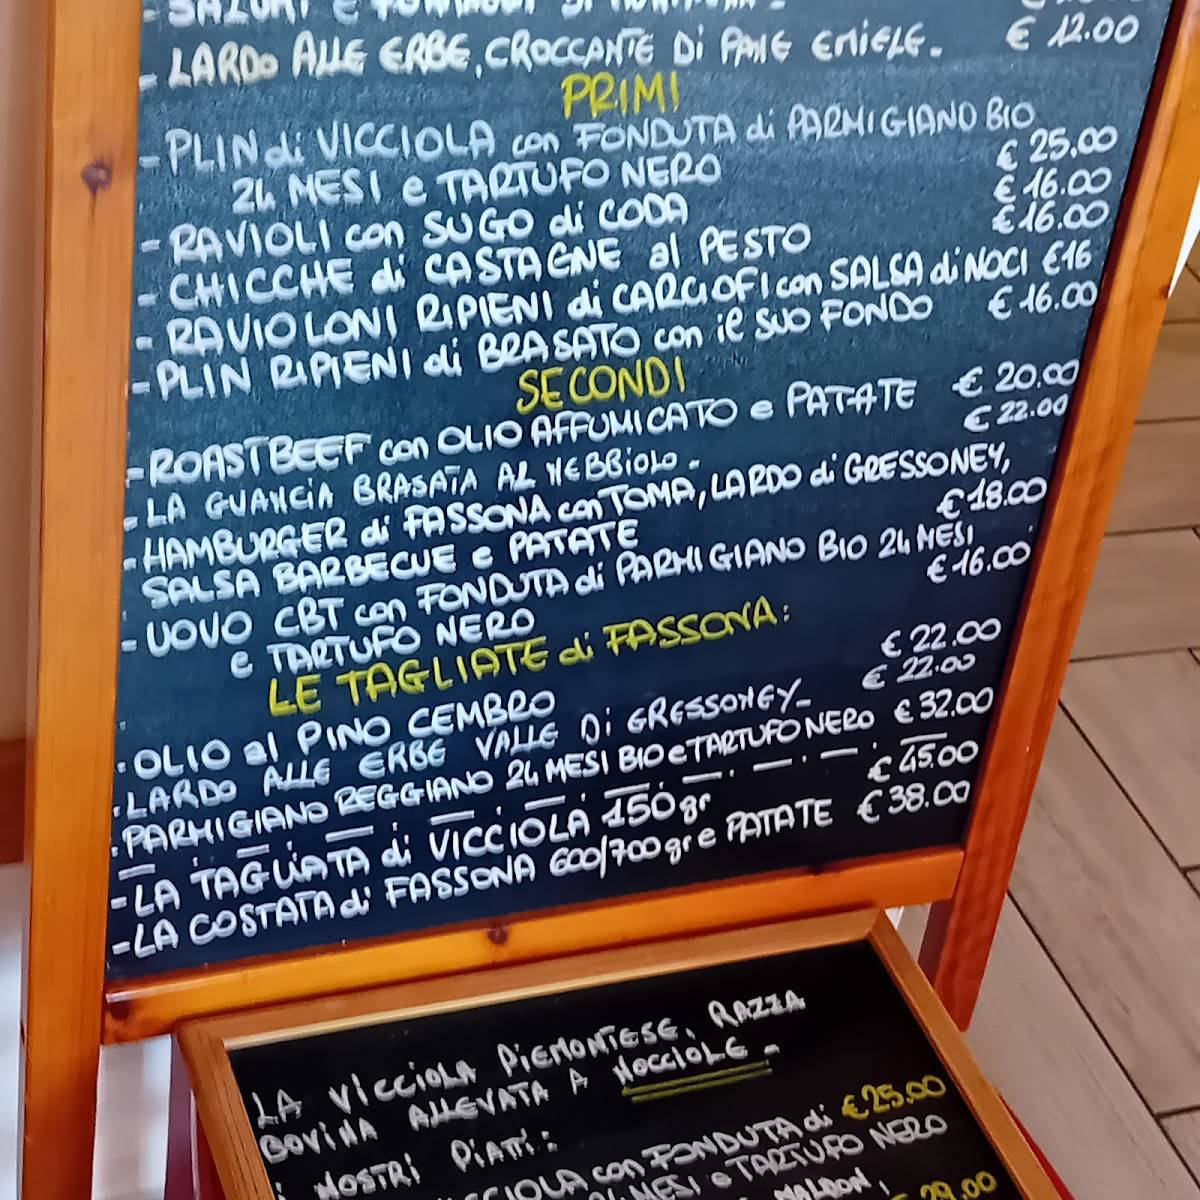 - SALUMI E FORMAGGI DI
- LARDO ALLE ERBE, CROCCANTE Di PANE E MIELE. € 12.00
PRIMI
- PLIN di VICCIOLA con FONDUTA di PARMIGIANO BIO
24 MESI e TARTUFO NERO € 25.00
- RAVIOLI con SUGO di CODA € 16.00
- CHICCHE di CASTAGNE al PESTO € 16.00
- RAVIOLONI RIPIENI di CARCIOFI con SALSA di NOCI €16
- PLIN RIPIENI di BRASATO con il SUO FONDO € 16.00
SECONDI
- ROASTBEEF con OLIO AFFUMICATO e PATATE € 20.00
- LA GUANCIA BRASATA AL NEBBIOLO. € 22.00
- HAMBURGER di FASSONA con TOMA, LARDO di GRESSONEY,
SALSA BARBECUE e PATATE € 18.00
- UOVO CBT con FONDUTA di PARMIGIANO BIO 24 MESI
e TARTUFO NERO € 16.00
LE TAGLIATE di FASSONA:
. OLIO al PINO CEMBRO € 22.00
. LARDO ALLE ERBE VALLE Di GRESSONEY- € 22.00
. PARMIGIANO REGGIANO 24 MESI BIO e TARTUFO NERO € 32.00
- LA TAGLIATA di VICCIOLA 150gr € 45.00
- LA COSTATA di FASSONA 600/700gr e PATATE € 38.00
LA VICCIOLA PIEMONTESE, RAZZA
BOVINA ALLEVATA A NOCCIOLE -
I NOSTRI PIATTI:
con FONDUTA di € 25.00
MESI e TARTUFO NERO
29.00